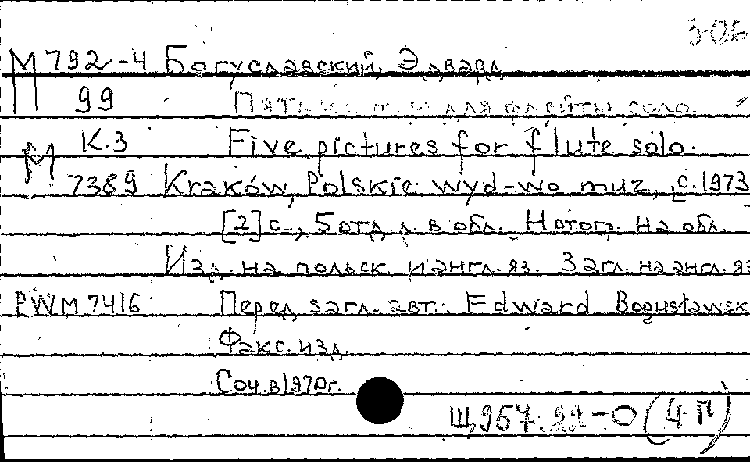 3-06
М 792-4 Богуславский, Эдвард
П 99 Пять для флейты соло.
М К.3 Five pictures for flute solo.
7389 Kraków, Polskie wyd-wo muz., с.1973
[2] с., 5 отд. л. в обл. Нотогр. на обл.
Изд. на польск. и англ. яз. Загл. на англ. яз
PWM 7416 Перед загл. авт.: Edward Bogusławsk
Факс. изд.
Соч. в 1970г.
Щ957. -0 (4 п)